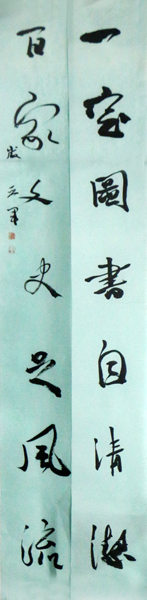 一室圖書自清潔
百家文史足風流